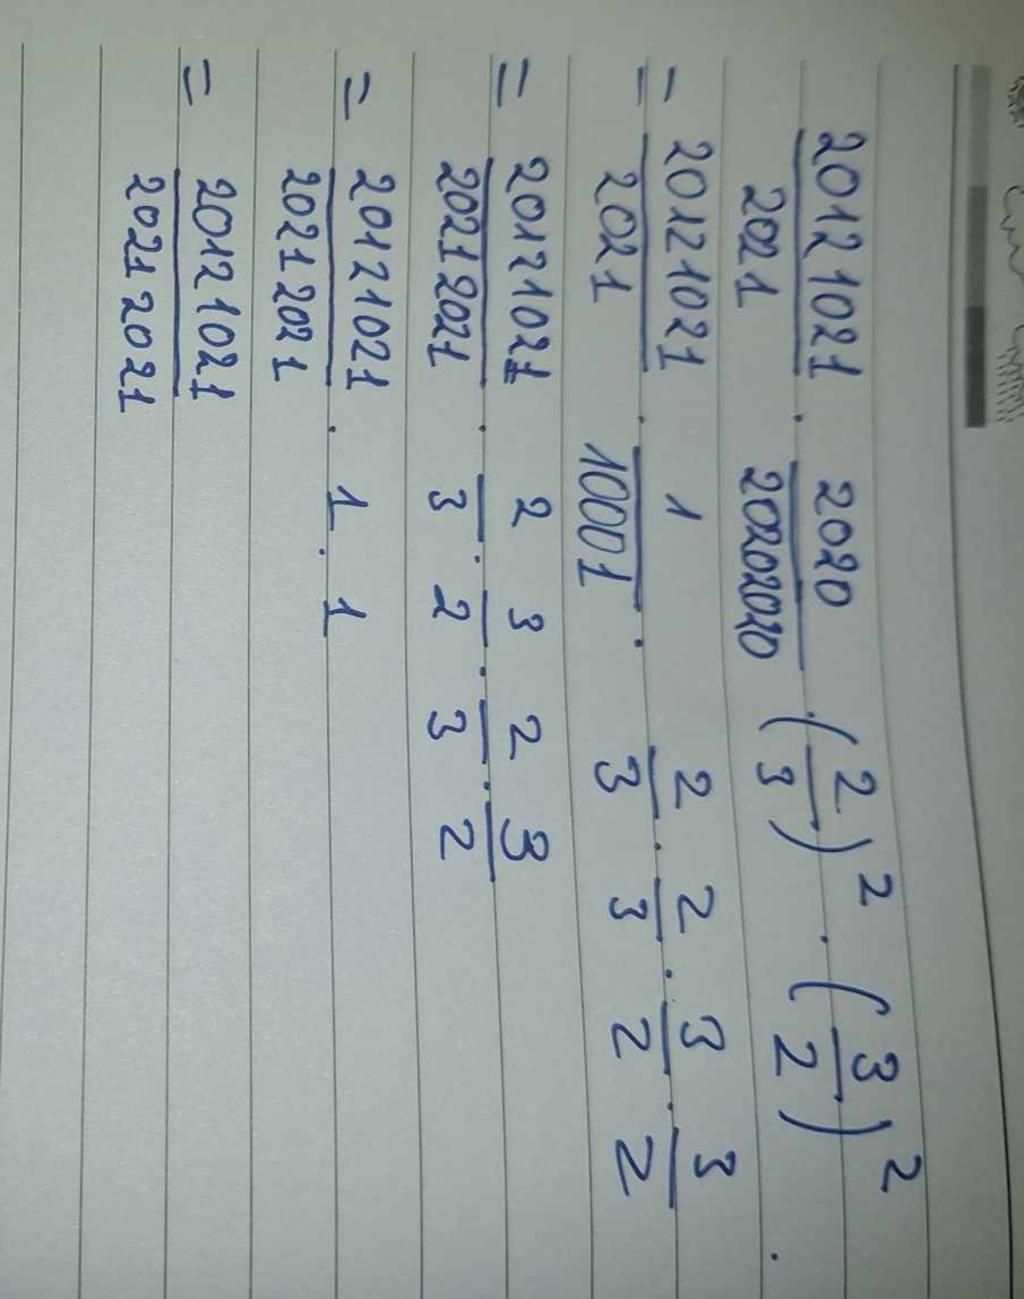 20121021/2021 · 2020/20202020 · (2/3)² · (3/2)² ·
= 20121021/2021 · 1/10001 · 2/3 · 2/3 · 3/2 · 3/2
= 20121021/20212021 · 2/3 · 3/2 · 2/3 · 3/2
= 20121021/20212021 · 1 · 1
= 20121021/20212021